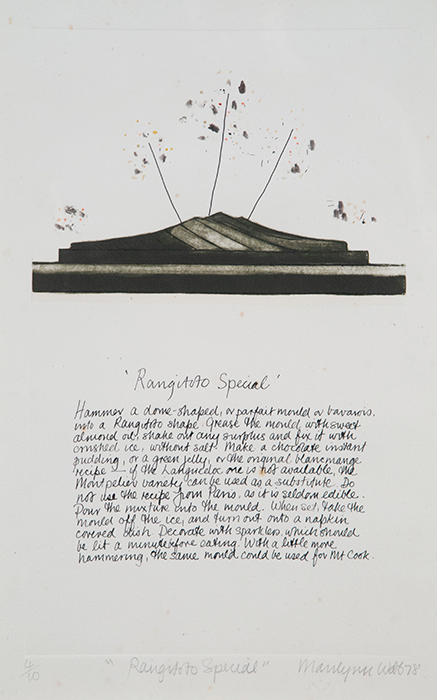 'Rangitoto Special'
Hammer a dome-shaped, or parfait mould or bavarois.
into a Rangitoto shape. Grease the mould with sweet
almond oil, shake out any surplus and fix it with
crushed ice, without salt. Make a chocolate instant
pudding, or a green jelly, or the original blancmange
recipe — if the Languedoc one is not available, the
Montpelier variety can be used as a substitute. Do
not use the recipe from Paris, as it is seldom edible.
Pour the mixture into the mould. When set, take the
mould off the ice, and turn out onto a napkin
covered dish. Decorate with sparklers, which should
be lit a minute before eating. With a little more
hammering, the same mould could be used for Mt Cook.
4/10 "Rangitoto Special" Marilynn Webb 78